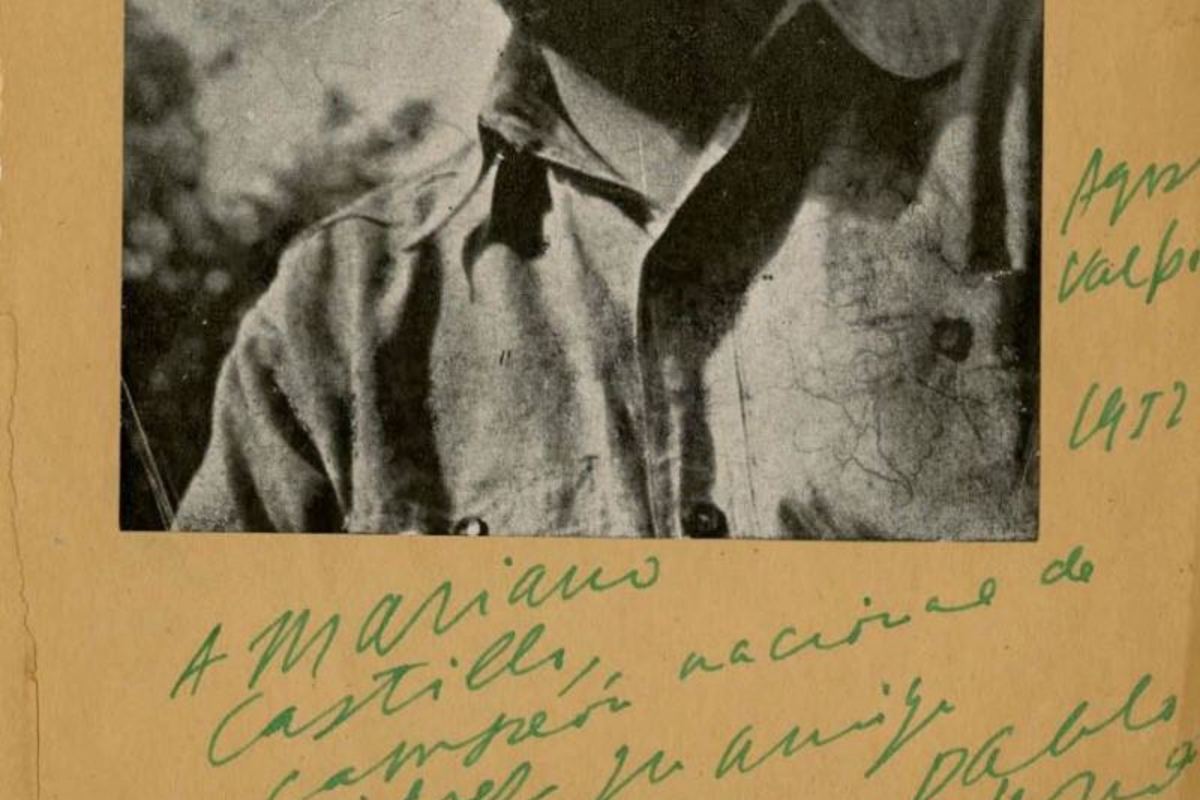 Valp
1952
A Mariano
Castillo,
campeón nacional de
su amigo
Pablo